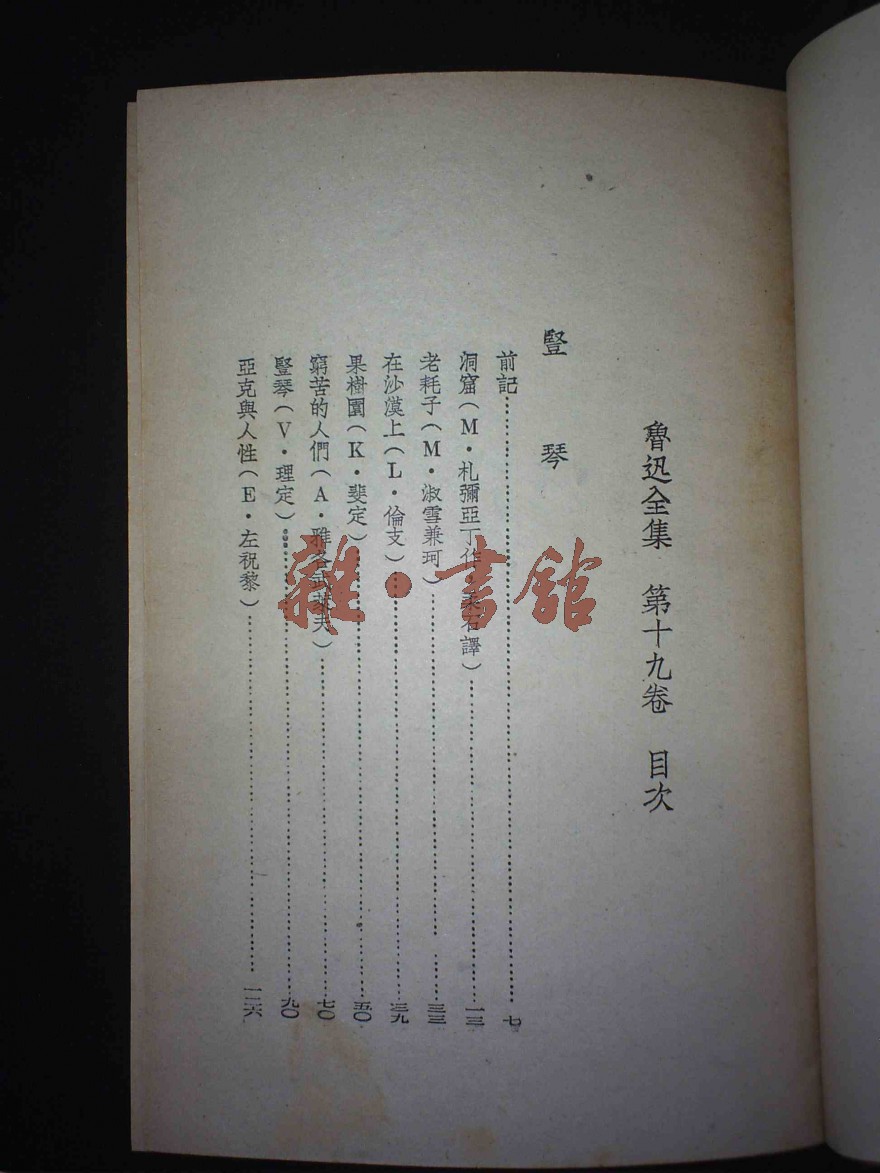 魯迅全集 第十九卷 目次
豎琴
前記……七
洞窟(M·札彌亞丁作·柔石譯)……一三
老耗子(M·淑雪兼珂)……三三
在沙漠上(L·倫支)……三九
果樹園(K·斐定)……五〇
窮苦的人們(A·雅各武萊夫)……七〇
豎琴(V·理定)……九〇
亞克與人性(E·左祝黎)……一二六
雜·書館